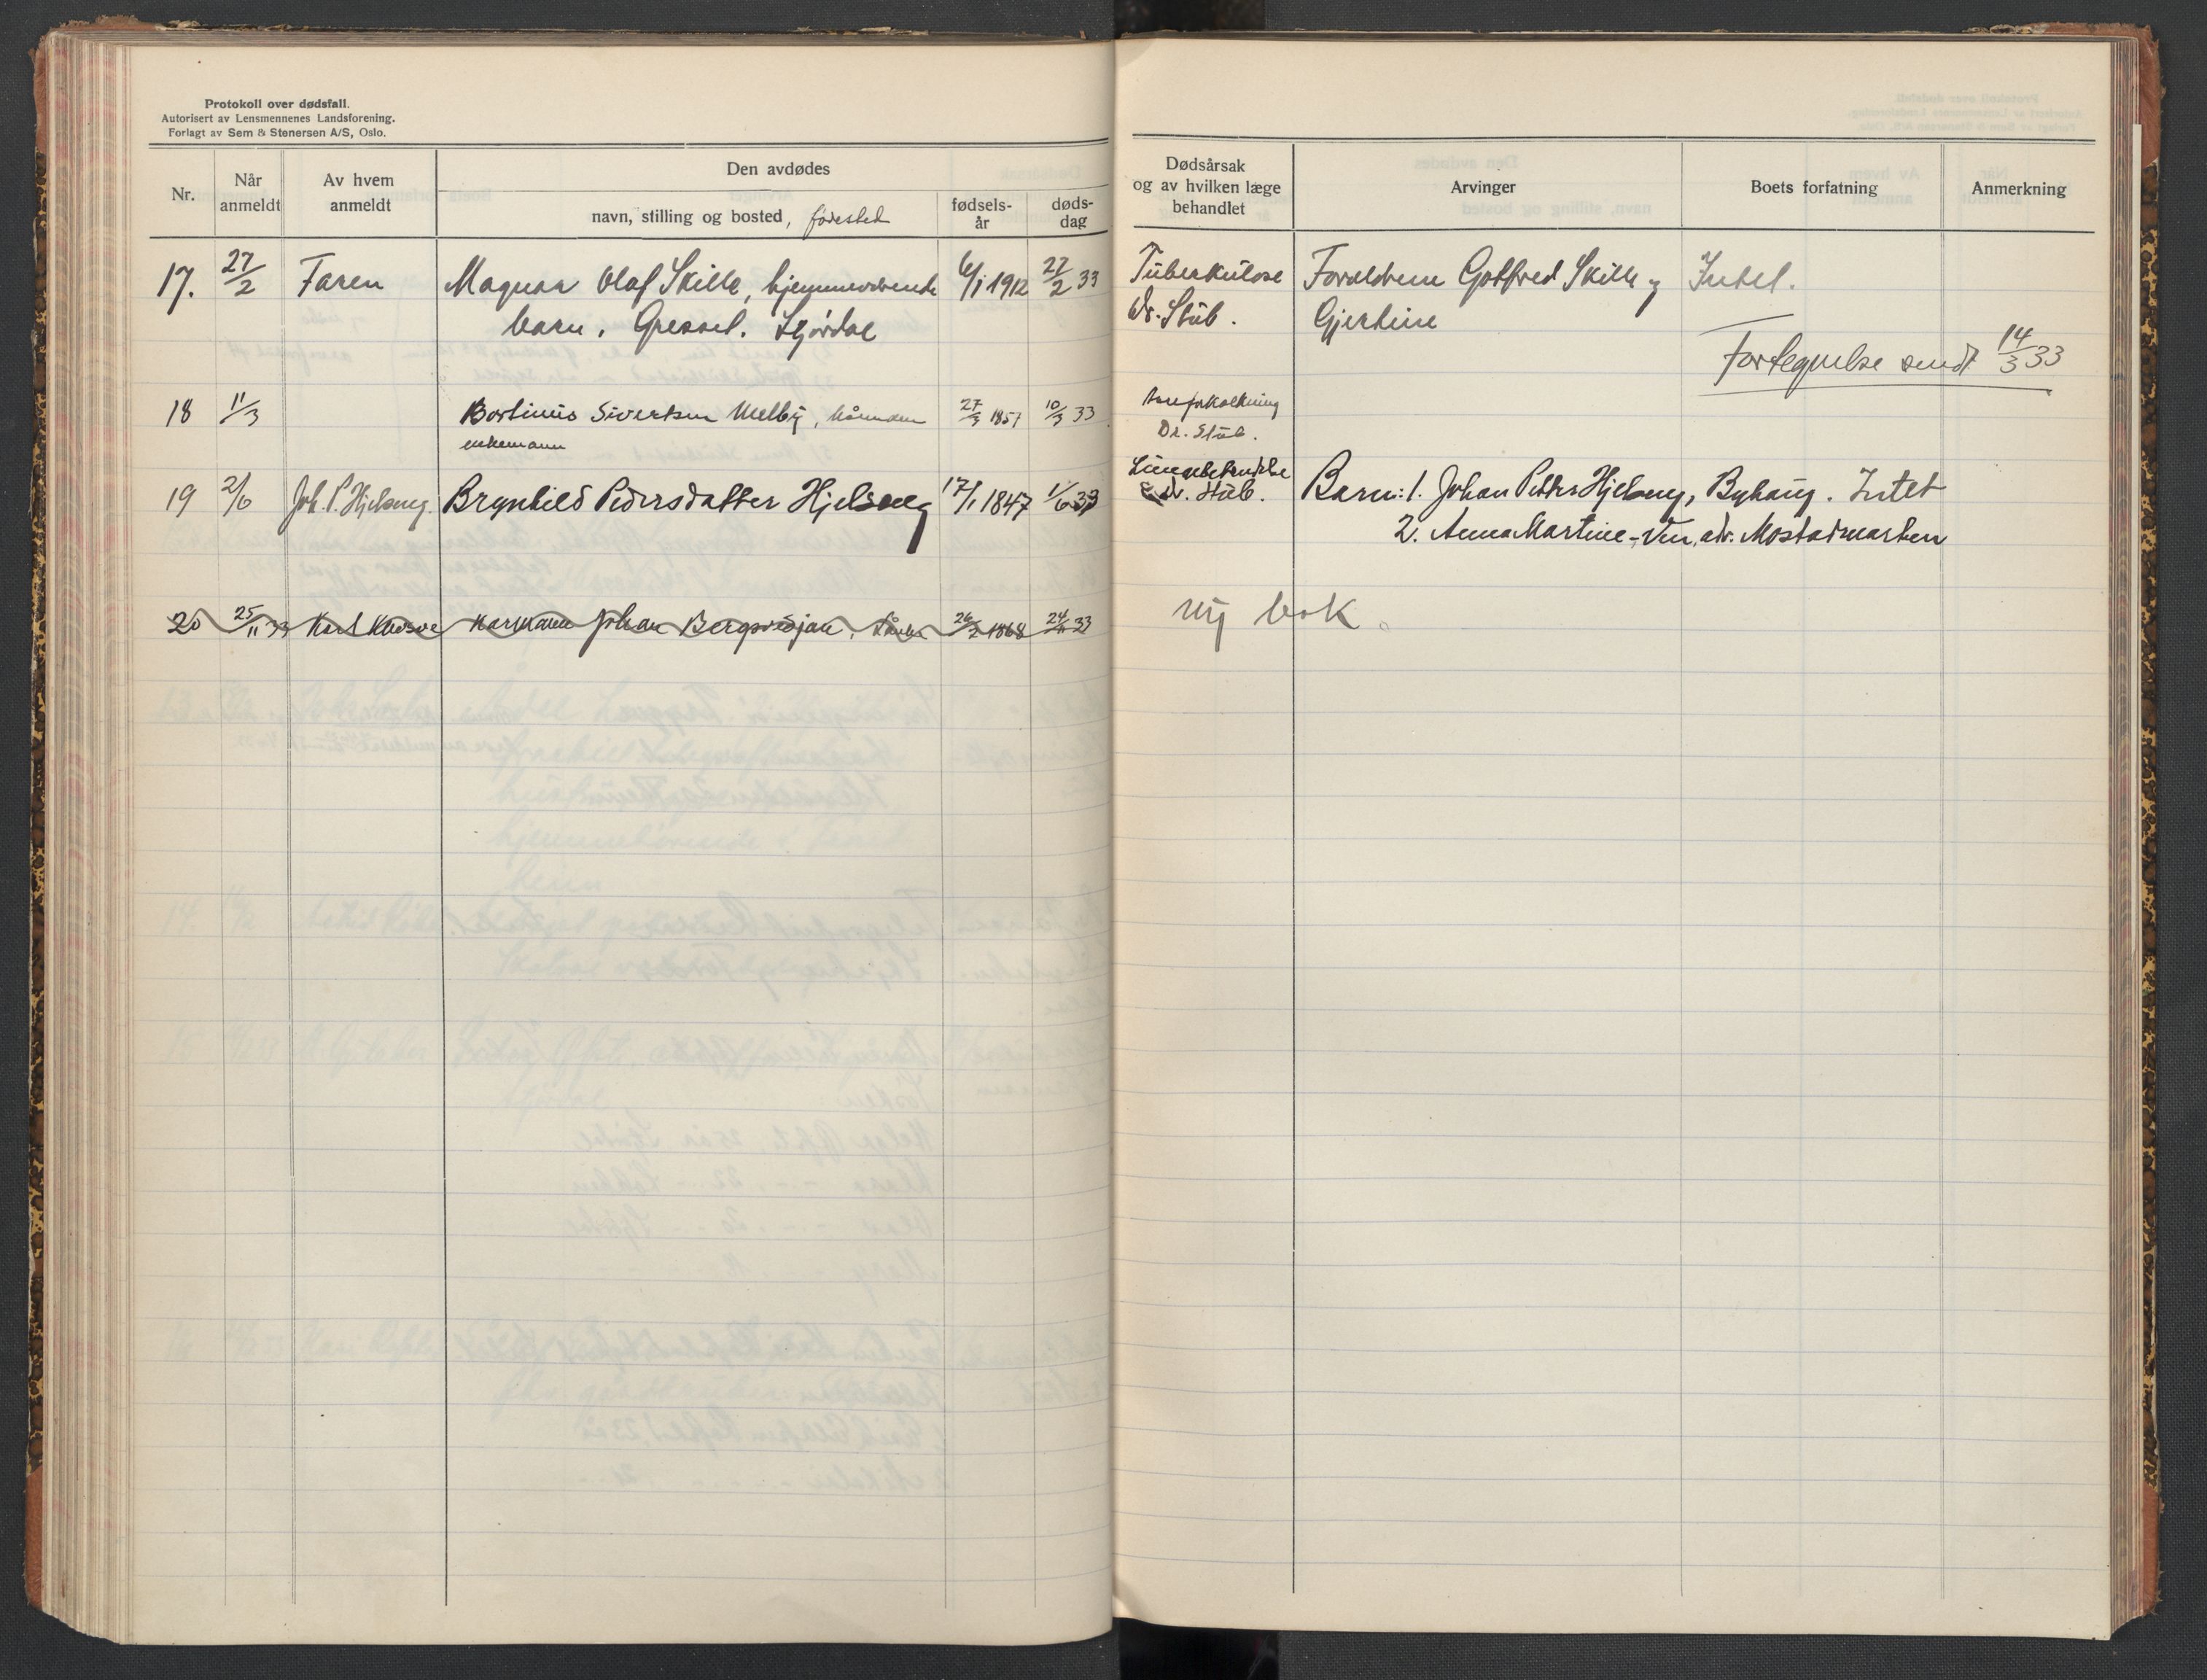 Protokoll over dødsfall.
Autorisert av Lensmennenes Landsforening.
Forlagt av Sem & Stenersen A/S, Oslo.
Nr.
Når anmeldt
Av hvem anmeldt
Den avdødes
navn, stilling og bosted, fødested
fødsels-år
døds-dag
Dødsårsak og av hvilken læge behandlet
Arvinger
Boets forfatning
Anmerkning
17. 27/2 Faren Magnar Olaf Skille, hjemmeværende 6/1 1912 27/2 33 Tuberkulose Foreldrene Gotfred Skille og Intet.
barn. Gressel. Stjørdal Dr. Stub. Gjertine
Fortegnelse sendt 14/3 33
18 11/3 Bortinus Sivertsen Melby, kårmann 27/3 1857 10/3 33 Åreforkalkning
enkemann Dr. Stub.
19 2/6 Joh. P. Hjelseng. Brynhild Pedersdatter Hjelseng 17/1 1847 1/6 33 Lungebetendelse Barn: 1. Johan Petter Hjelseng, Byhaug. Intet
dr. Stub. 2. Anna Martine, adr. Mostadmarken
20 25/11 33 Karl Kårmann Johan 26/2 1868 24/11 33 Ny bok.